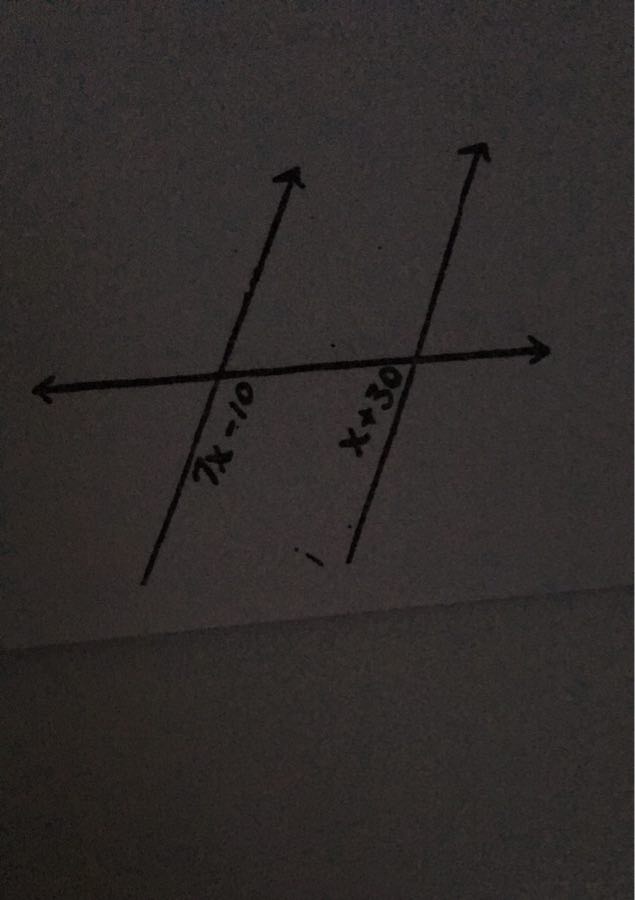 7x-10
x+30